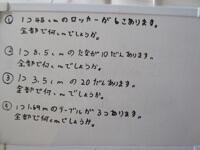 ① 1つ48cmのロッカーが6こあります。
全部で何cmでしょうか。
② 1つ8.5cmのたなが10だんあります。
全部で何cmでしょうか。
③ 1つ3.5cmの20だんあります。
全部で何cmでしょうか。
④ 1つ1.69mのテーブルが3つあります。
全部で何cmでしょうか。